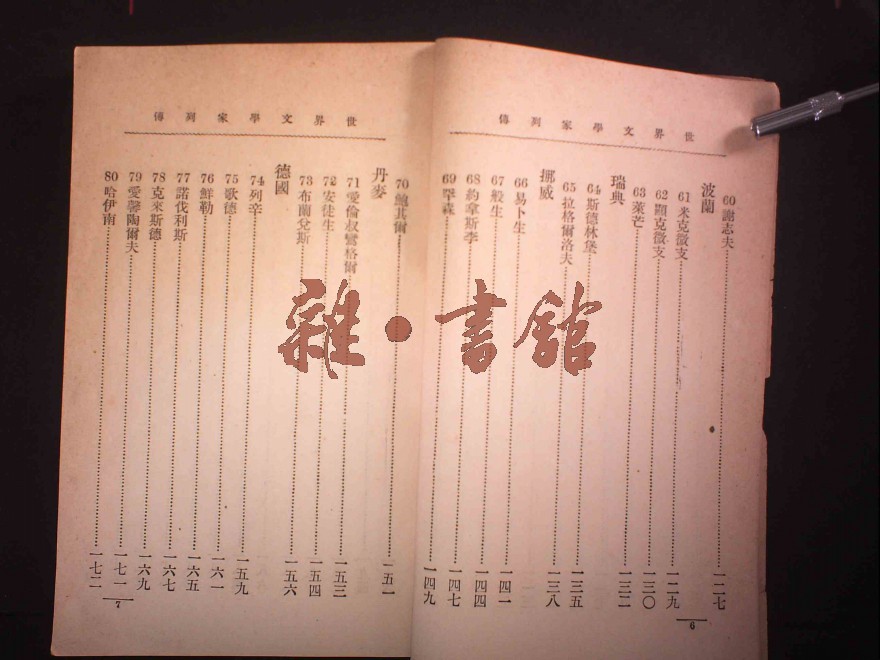 世界文學家列傳
60 謝志夫……一二七
波蘭
61 米克微支……一二九
62 顯克微支……一三〇
63 萊芒……一三二
瑞典
64 斯德林堡……一三五
65 拉格爾洛夫……一三八
挪威
66 易卜生……一四一
67 般生……一四四
68 約拿斯李……一四七
69 森……一四九
6
世界文學家列傳
70 鮑其爾……一五一
丹麥
71 愛倫叔格爾……一五三
72 安徒生……一五四
73 布蘭兌斯……一五六
德國
74 列辛……一五九
75 歌德……一六一
76 鮮勒……一六五
77 諾伐利斯……一六七
78 克來斯德……一六九
79 愛馨陶爾夫……一七一
80 哈伊南……一七二
7
雜·書館